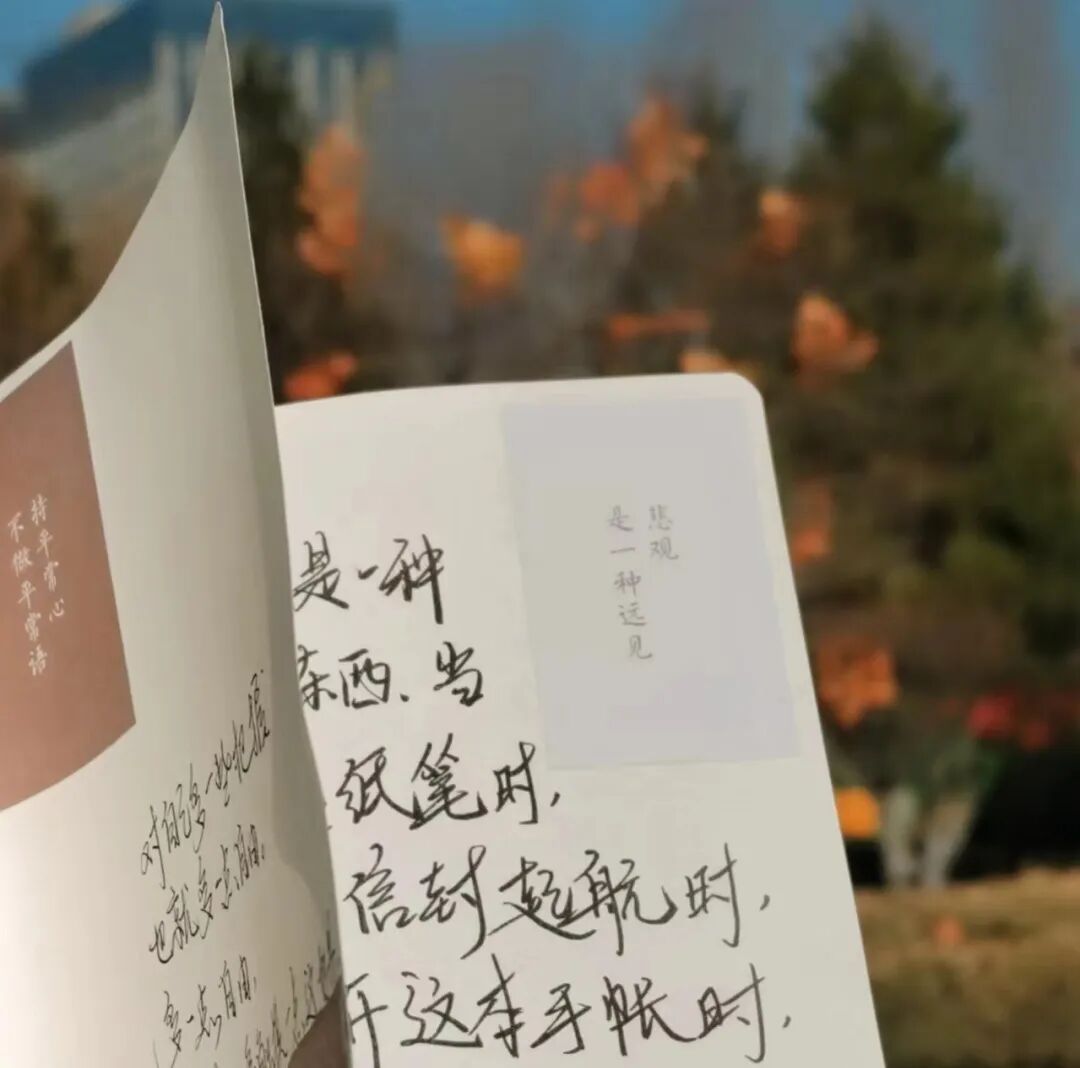 持平常心
不做平常语
对自己多一些把握
也就多一点自由。
多一点自由。
悲观
是一种远见
是一种
东西、当
纸笔时,
信封起航时,
开这本手帐时,